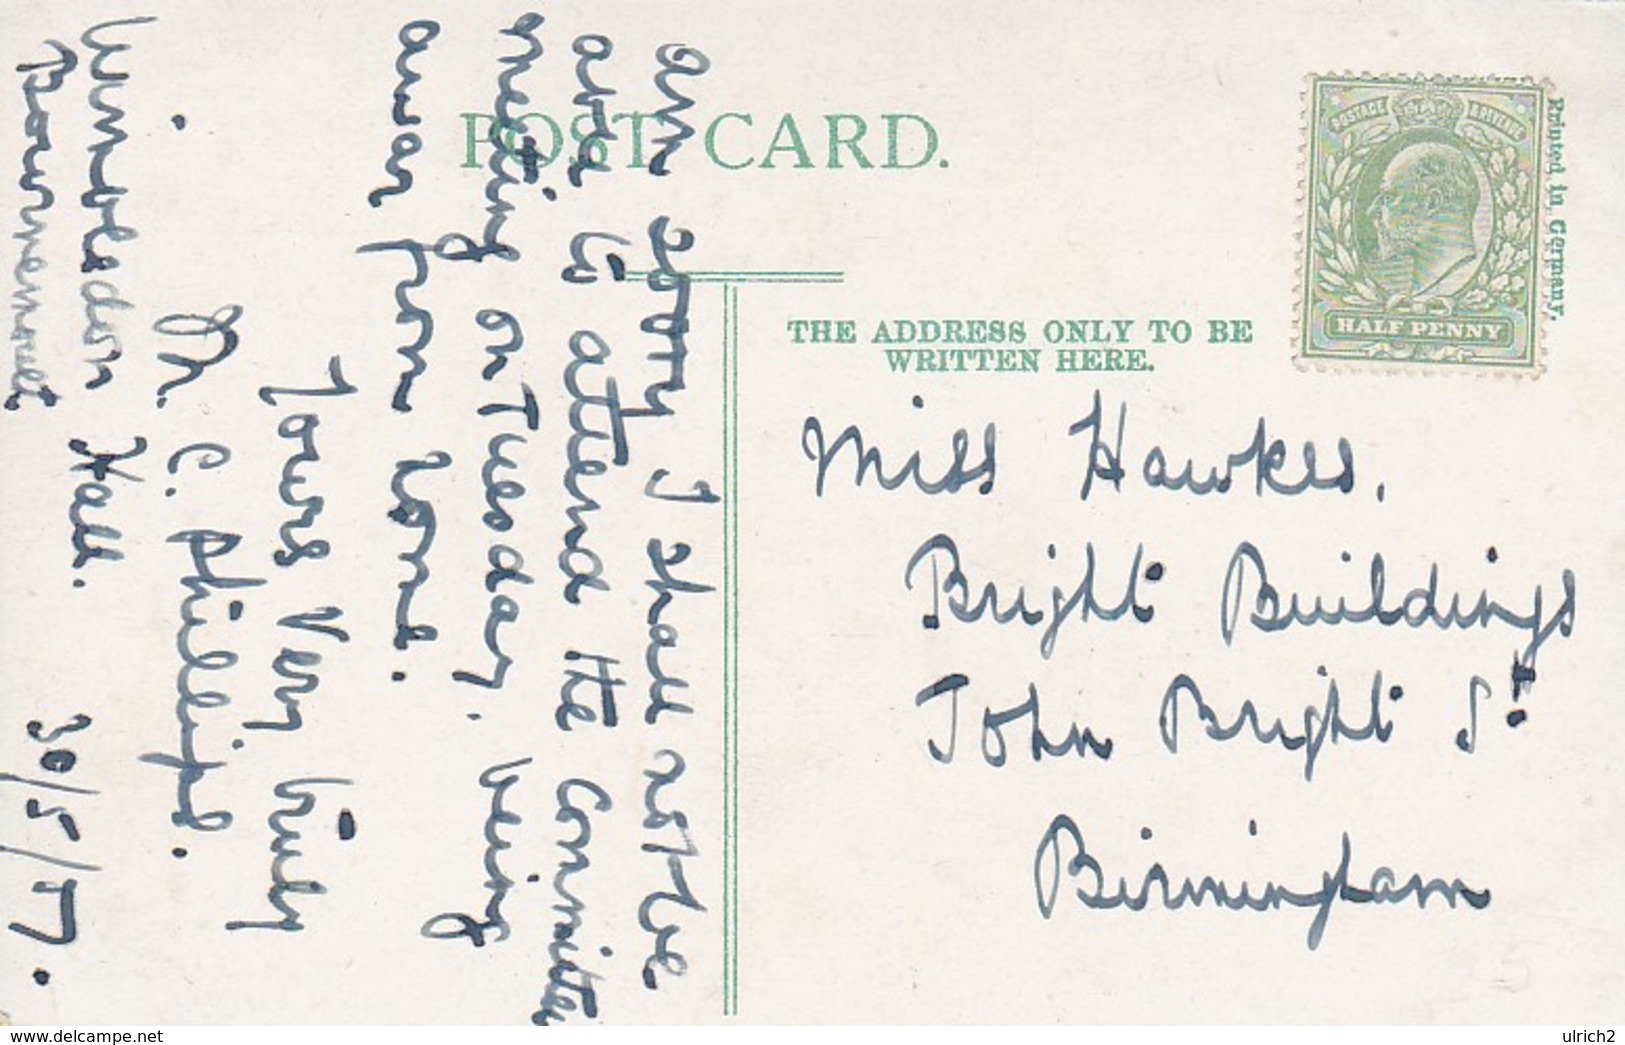 POST CARD.
Printed in Germany.
POSTAGE & REVENUE
HALF PENNY
THE ADDRESS ONLY TO BE
WRITTEN HERE.
Miss Hawkes.
Bright Buildings
John Bright St.
Birmingham
am sorry I shall not be
able to attend the Committee
meeting on Tuesday. being
away from home.
Yours Very truly
M. C. Phillips.
Wimbledon Hall.
Bournemouth 30/5/17.
delcampe.net
ulrich2